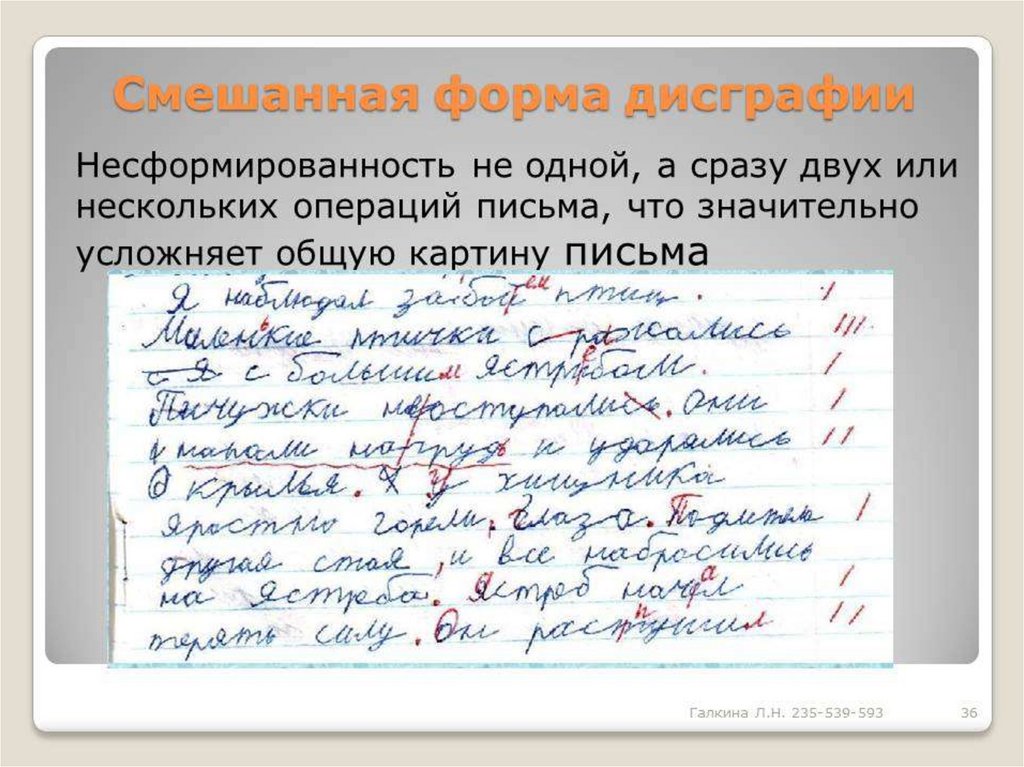 Смешанная форма дисграфии
Несформированность не одной, а сразу двух или
нескольких операций письма, что значительно
усложняет общую картину письма
Я наблюдал за боем птиц.
Маленькие птички с ражались
с я с большим ястребом.
Пичужки Они
нападали на грудь и ударались
О крылья. У хищника
яростно горели глаза. Подлетела
другая стая, и все набросились
на Ястреба. Ястреб начал
терять силу. Он
Галкина Л.Н. 235-539-593
36